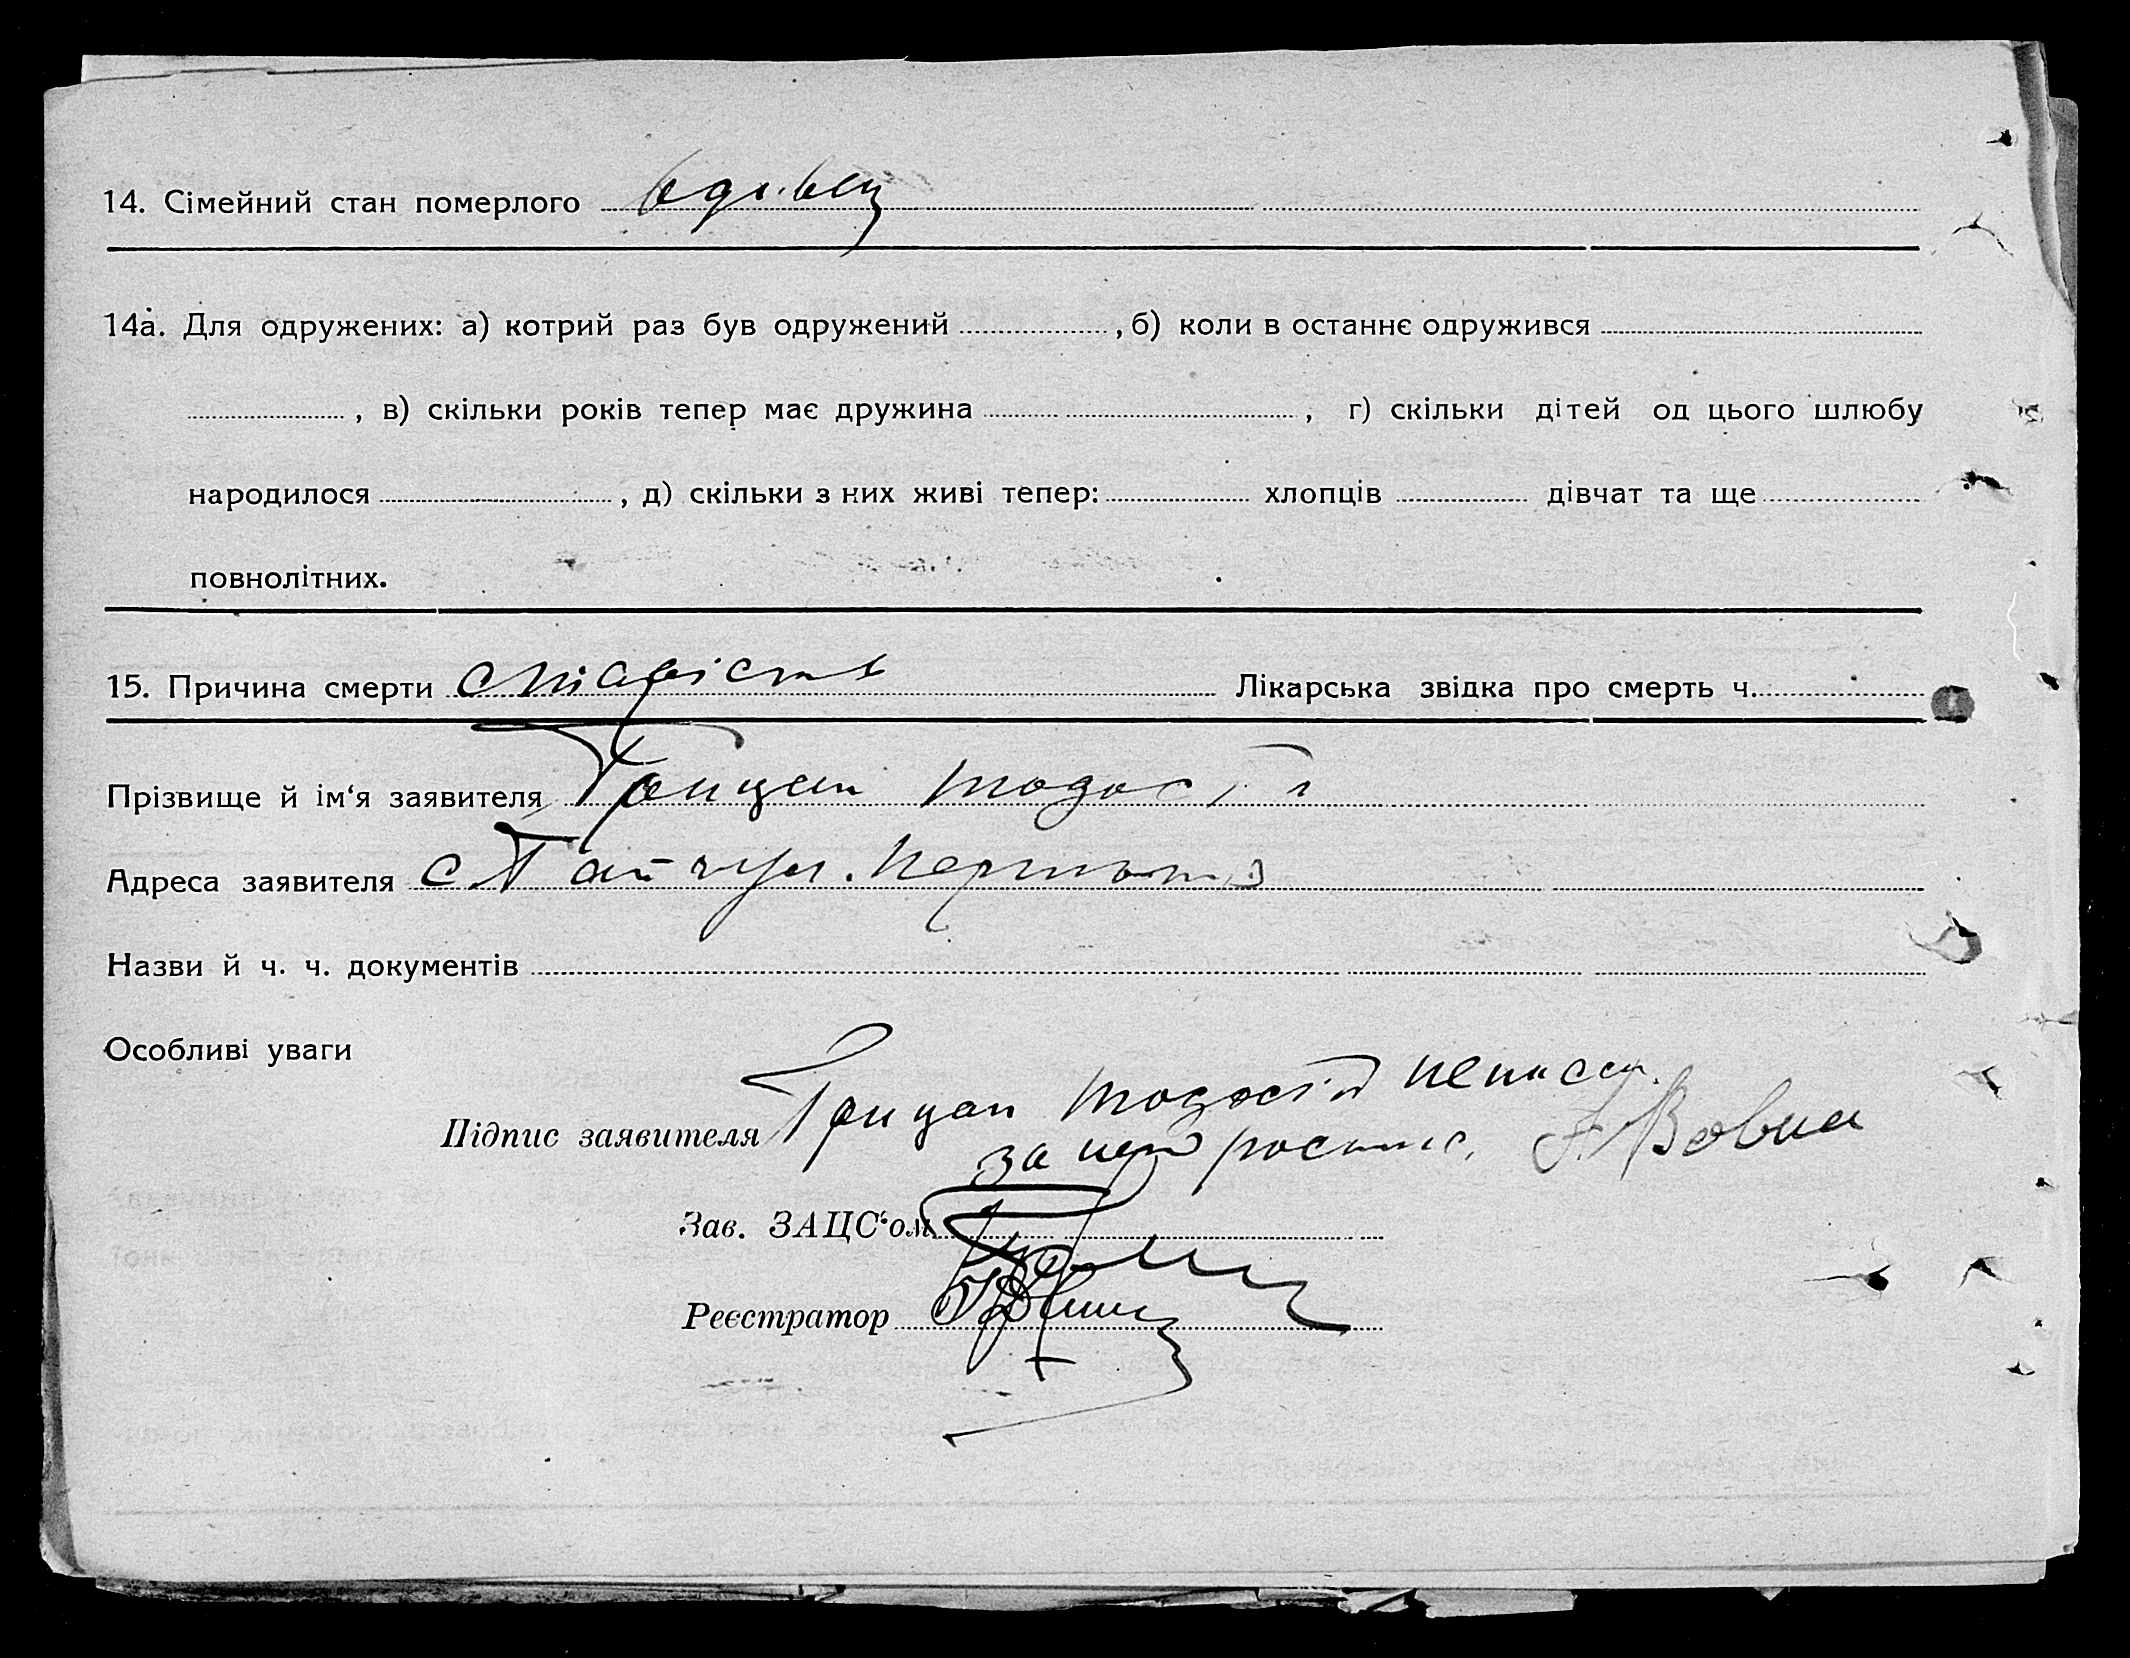 14. Сімейний стан померлого вдівец
14а. Для одружених: а) котрий раз був одружений , б) коли в останнє одружився
, в) скільки років тепер має дружина , г) скільки дітей од цього шлюбу
народилося , д) скільки з них живі тепер: хлопців дівчат та ще
повнолітних.
15. Причина смерти старість Лікарська звідка про смерть ч.
Прізвище й ім‘я заявителя Грицай Тодосій
Адреса заявителя с
Назви й ч. ч. документів
Особливі уваги
Підпис заявителя Грицай Тодосій
за
Зав. ЗАЦС‘ом
Реєстратор